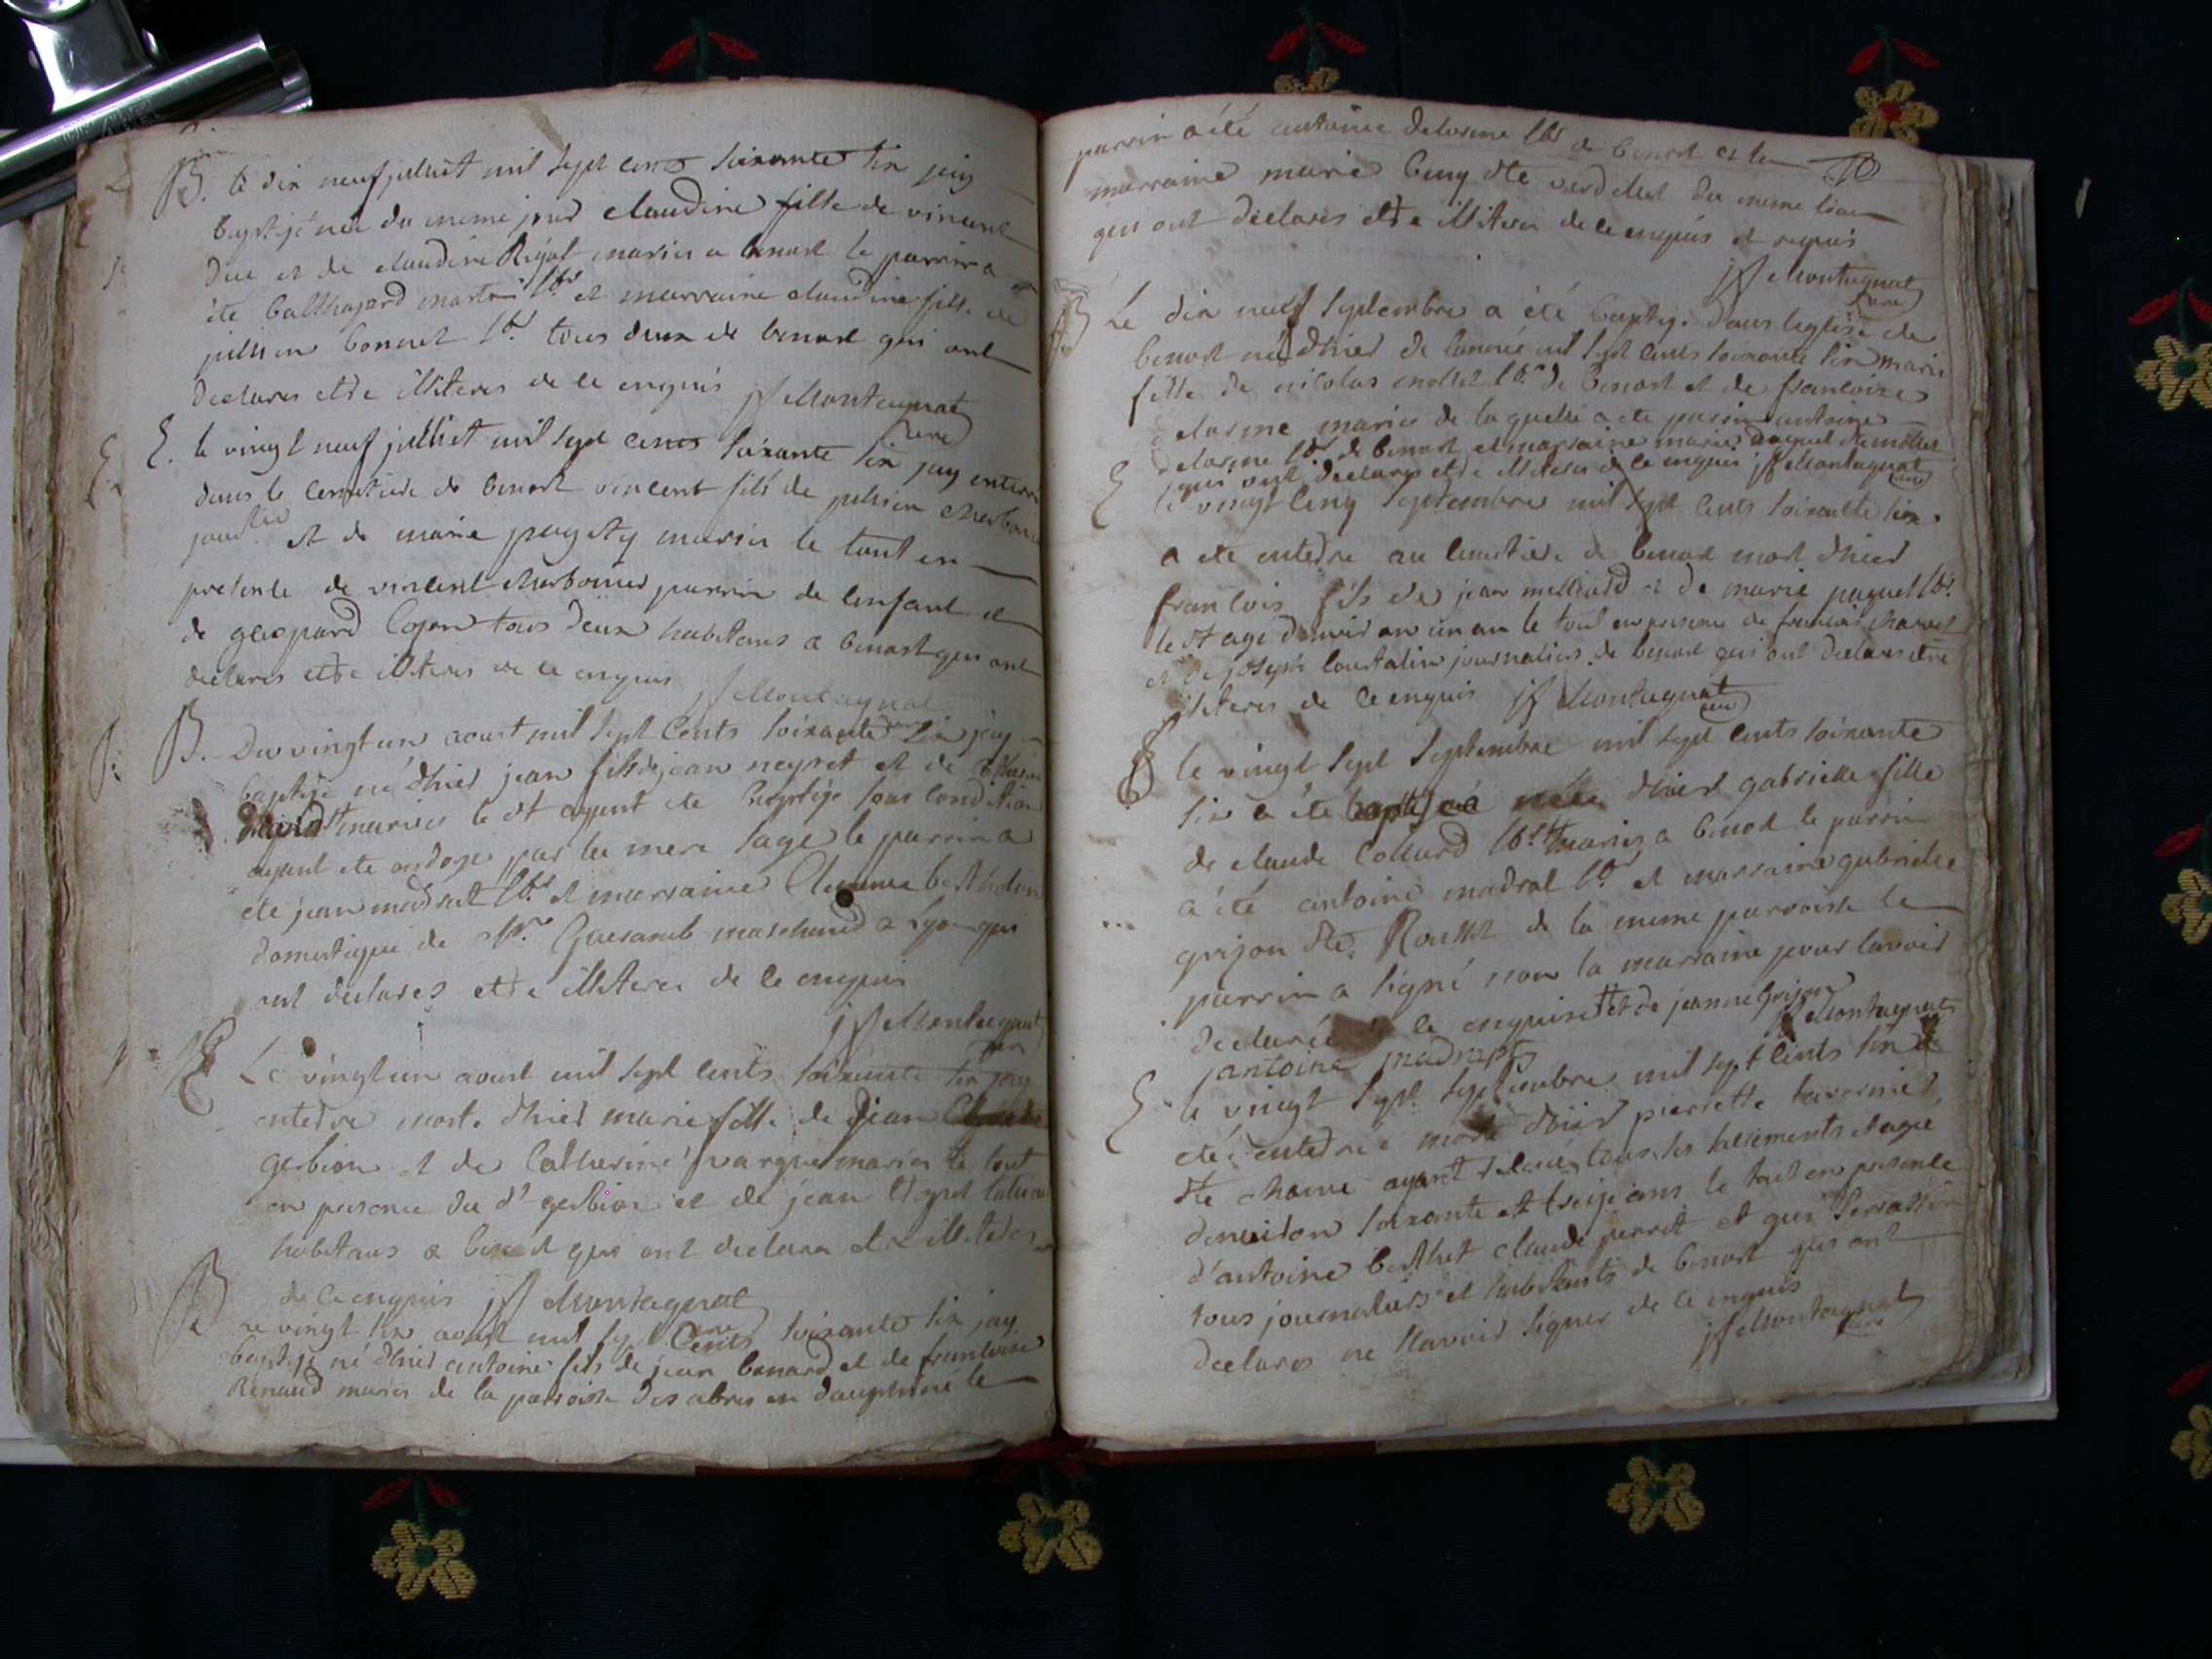 B. le dix neuf juliet mil sept cents soixante six jay
baptisé née du meme jour claudine fille de vincent
Duc et de claudine Rigot mariés a benost le parrin a
été balthazard martin lbr et marraine claudine fille de
julien bonnet lbr tous deux de benost qui ont
declarés etre illiteres de ce enquis jf Montagnat
curé
E. le vingt neuf julliet mil sept cents soixante six jay enterré
dans le cemetiere de benost vincent fils de julien charbon
et de marie pugety mariés le tout en
presence de vincent charbonnier parrin de lenfant et
de gaspard Cojon tous deux habitans a benost qui ont
declarés etre illiteres de ce enquis
jf Montagnat
curé
B. Du vingt un aoust mil sept Cents soixante six jay
baptisé né d'hier jean fils de jean neyret et de
mariés le dt ayant ete baptisé sous condition
ayant ete ondoyé par la mere sage le parrin a
ete jean madrat lbr et marraine berthelon
domestique de Sr. marchand a Lyon qui
ont declarés etre illiteres de ce enquis
jf Montagnat
curé
E Le vingt un aoust mil sept cents soixante six jay
enterre morte d'hier marie fille de jean
gerbion et de Catherine mariés le tout
en presence du dt gerbion et de jean
habitans a benost qui ont declarés etre illiteres
de ce enquis jf Montagnat
curé
B le vingt six aoust mil sept Cents soixante six jay
baptisé né d'hier antoine fils de jean benard et de francoise
Renaud mariés de la parroisse des abres en dauphiné le
parrin a été antoine delorme lbr de benost et la
10
marraine marie cuny dte verdellet du meme lieu
qui ont declarés etre illiteres de ce enquis et requis
jf Montagnat
curé
B Le dix neuf septembre a été baptisé dans leglise de
benost née d'hier de lannée mil sept cents soixante six marie
fille de nicolas mollet lbr de benost et de francoise
delorme mariés de laquelle a ete parrin antoine
delorme lbr de benost et marraine marie paquet dte mollet
qui ont declarés etre illiteres de ce enquis jf Montagnat
curé
E le vingt cinq septembre mil sept cents soixante six
a ete enterre au cemetiere de benost mort d'hier
francois fils de jean milliard et de marie paquet lbr
le dt agé d'environ un an le tout en presence de francois charvet
et de joseph coustalin journaliers de benost qui ont declarés etre
illiteres de ce enquis jf Montagnat
curé
B le vingt sept septembre mil sept cents soixante
six a été baptisée née d'hier gabrielle fille
de claude Collard lbr # mariés a benost le parrin
a été antoine madrat lbr et marraine gabrielle
grijon dte Rousset de la meme parroisse le
parrin a signé non la marraine pour lavoir
declaré de ce enquise # et de jeanne Grijon
jf Montagnat
antoine madrat
E le vingt sept septembre mil sept cents six a
eté enterrée morte d'hier pierrette tavernier
dte chanu ayant receu tous les sacrements et agée
d'environ soixante et treize ans le tout en presence
d'antoine berthet claude perret et guis perrassin
tous journaliers et habitants de benost qui ont
declarés ne scavoir signer de ce enquis
jf Montagnat
curé